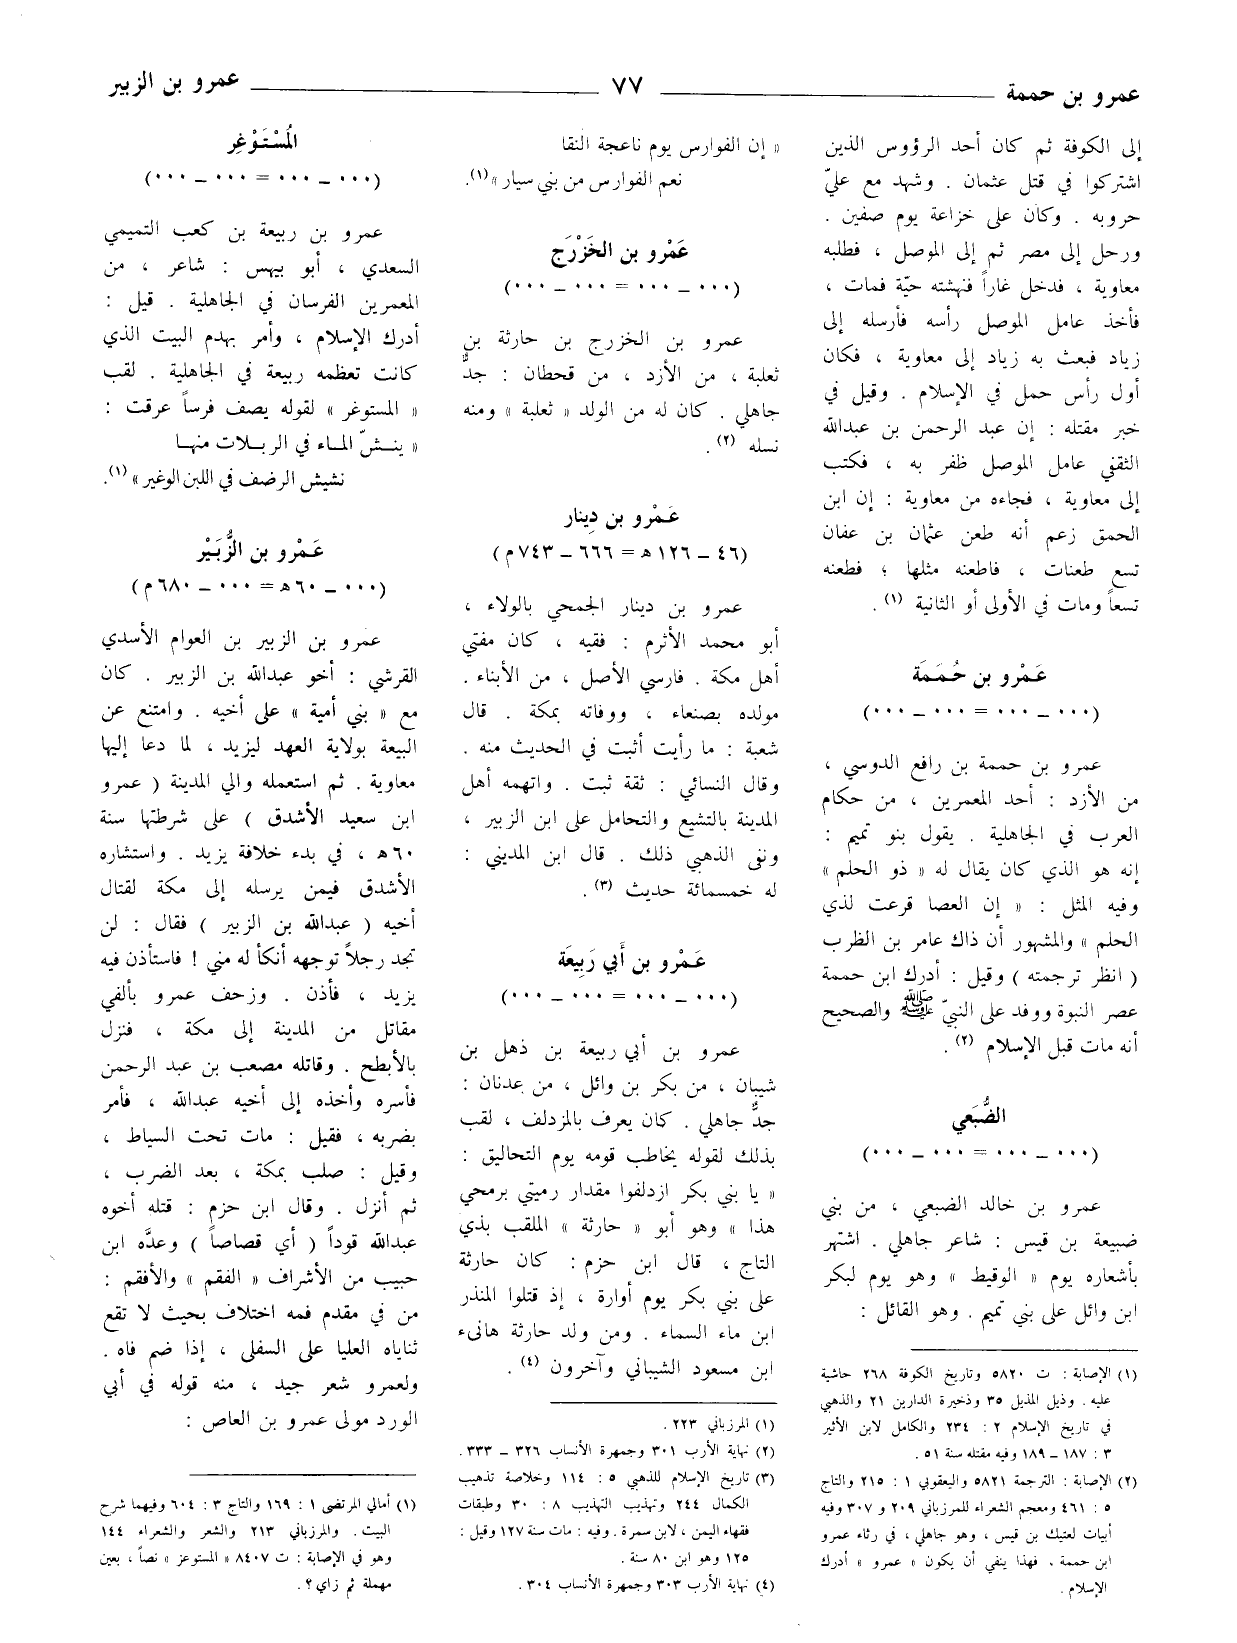 عمرو بن حممة ٧٧ عمرو بن الزبير
إلى الكوفة ثم كان أحد الرؤوس الذين
اشتركوا في قتل عثمان . وشهد مع عليّ
حروبه . وكان على خزاعة يوم صفين .
ورحل إلى مصر ثم إلى الموصل ، فطلبه
معاوية ، فدخل غاراً فنهشته حيّة فمات ،
فأخذ عامل الموصل رأسه فأرسله إلى
زياد فبعث به زياد إلى معاوية ، فكان
أول رأس حمل في الإسلام . وقيل في
خبر مقتله : إن عبد الرحمن بن عبدالله
الثقفي عامل الموصل ظفر به ، فكتب
إلى معاوية ، فجاءه من معاوية : إن ابن
الحمق زعم أنه طعن عثمان بن عفان
تسع طعنات ، فاطعنه مثلها ؛ فطعنه
تسعاً ومات في الأولى أو الثانية (١) .
عَمْرو بن حُمَمَة
(٠٠٠ ــ ٠٠٠ = ٠٠٠ ــ ٠٠٠)
عمرو بن حممة بن رافع الدوسي ،
من الأزد : أحد المعمرين ، من حكام
العرب في الجاهلية . يقول بنو تميم :
إنه هو الذي كان يقال له « ذو الحلم »
وفيه المثل : « إن العصا قرعت لذي
الحلم » والمشهور أن ذاك عامر بن الظرب
( انظر ترجمته ) وقيل : أدرك ابن حممة
عصر النبوة ووفد على النبيّ ﷺ والصحيح
أنه مات قبل الإسلام (٢) .
الضُّبَعي
(٠٠٠ ــ ٠٠٠ = ٠٠٠ ــ ٠٠٠)
عمرو بن خالد الضبعي ، من بني
ضبيعة بن قيس : شاعر جاهلي . اشتهر
بأشعاره يوم « الوقيط » وهو يوم لبكر
ابن وائل على بني تميم . وهو القائل :
(١) الإصابة : ت ٥٨٢٠ وتاريخ الكوفة ٢٦٨ حاشية
عليه . وذيل المذيل ٣٥ وذخيرة الدارين ٢١ والذهبي
في تاريخ الإسلام ٢ : ٢٣٤ والكامل لابن الأثير
٣ : ١٨٧ ــ ١٨٩ وفيه مقتله سنة ٥١ .
(٢) الإصابة : الترجمة ٥٨٢١ واليعقوبي ١ : ٢١٥ والتاج
٥ : ٤٦١ ومعجم الشعراء للمرزباني ٢٠٩ و ٣٠٧ وفيه
أبيات لعتيك بن قيس ، وهو جاهلي ، في رثاء عمرو
ابن حممة ، فهذا ينفي أن يكون « عمرو » أدرك
الإسلام .
« إن الفوارس يوم ناعجة النقا
نعم الفوارس من بني سيار » (١) .
عَمْرو بن الخَزْرَج
(٠٠٠ ــ ٠٠٠ = ٠٠٠ ــ ٠٠٠)
عمرو بن الخزرج بن حارثة بن
ثعلبة ، من الأزد ، من قحطان : جدٌّ
جاهلي . كان له من الولد « ثعلبة » ومنه
نسله (٢) .
عَمْرو بن دِينار
(٤٦ ــ ١٢٦ ه = ٦٦٦ ــ ٧٤٣ م)
عمرو بن دينار الجمحي بالولاء ،
أبو محمد الأثرم : فقيه ، كان مفتي
أهل مكة . فارسي الأصل ، من الأبناء .
مولده بصنعاء ، ووفاته بمكة . قال
شعبة : ما رأيت أثبت في الحديث منه .
وقال النسائي : ثقة ثبت . واتهمه أهل
المدينة بالتشيع والتحامل على ابن الزبير ،
ونفى الذهبي ذلك . قال ابن المديني :
له خمسمائة حديث (٣) .
عَمْرو بن أَبي رَبِيعَة
(٠٠٠ ــ ٠٠٠ = ٠٠٠ ــ ٠٠٠)
عمرو بن أبي ربيعة بن ذهل بن
شيبان ، من بكر بن وائل ، من عدنان :
جدٌّ جاهلي . كان يعرف بالمزدلف ، لقب
بذلك لقوله يخاطب قومه يوم التحاليق :
« يا بني بكر ازدلفوا مقدار رميتي برمحي
هذا » وهو أبو « حارثة » الملقب بذي
التاج ، قال ابن حزم : كان حارثة
على بني بكر يوم أوارة ، إذ قتلوا المنذر
ابن ماء السماء . ومن ولد حارثة هانىء
ابن مسعود الشيباني وآخرون (٤) .
(١) المرزباني ٢٢٣ .
(٢) نهاية الأرب ٣٠١ وجمهرة الأنساب ٣٢٦ ــ ٣٣٣ .
(٣) تاريخ الإسلام للذهبي ٥ : ١١٤ وخلاصة تذهيب
الكمال ٢٤٤ وتهذيب التهذيب ٨ : ٣٠ وطبقات
فقهاء اليمن ، لابن سمرة . وفيه : مات سنة ١٢٧ وقيل :
١٢٥ وهو ابن ٨٠ سنة .
(٤) نهاية الأرب ٣٠٣ وجمهرة الأنساب ٣٠٤ .
المُسْتَوْغِر
(٠٠٠ ــ ٠٠٠ = ٠٠٠ ــ ٠٠٠)
عمرو بن ربيعة بن كعب التميمي
السعدي ، أبو بيهس : شاعر ، من
المعمرين الفرسان في الجاهلية . قيل :
أدرك الإسلام ، وأمر بهدم البيت الذي
كانت تعظمه ربيعة في الجاهلية . لقب
« المستوغر » لقوله يصف فرساً عرقت :
« ينـشّ المـاء في الربـلات منهـا
نشيش الرضف في اللبن الوغير » (١) .
عَمْرو بن الزُّبَيْر
(٠٠٠ ــ ٦٠ ه = ٠٠٠ ــ ٦٨٠ م)
عمرو بن الزبير بن العوام الأسدي
القرشي : أخو عبدالله بن الزبير . كان
مع « بني أمية » على أخيه . وامتنع عن
البيعة بولاية العهد ليزيد ، لما دعا إليها
معاوية . ثم استعمله والي المدينة ( عمرو
ابن سعيد الأشدق ) على شرطتها سنة
٦٠ ه ، في بدء خلافة يزيد . واستشاره
الأشدق فيمن يرسله إلى مكة لقتال
أخيه ( عبدالله بن الزبير ) فقال : لن
تجد رجلاً توجهه أنكأ له مني ! فاستأذن فيه
يزيد ، فأذن . وزحف عمرو بألفي
مقاتل من المدينة إلى مكة ، فنزل
بالأبطح . وقاتله مصعب بن عبد الرحمن
فأسره وأخذه إلى أخيه عبدالله ، فأمر
بضربه ، فقيل : مات تحت السياط ،
وقيل : صلب بمكة ، بعد الضرب ،
ثم أنزل . وقال ابن حزم : قتله أخوه
عبدالله قوداً ( أي قصاصاً ) وعدَّه ابن
حبيب من الأشراف « الفقم » والأفقم :
من في مقدم فمه اختلاف بحيث لا تقع
ثناياه العليا على السفلى ، إذا ضم فاه .
ولعمرو شعر جيد ، منه قوله في أبي
الورد مولى عمرو بن العاص :
(١) أمالي المرتضى ١ : ١٦٩ والتاج ٣ : ٦٠٤ وفيهما شرح
البيت . والمرزباني ٢١٣ والشعر والشعراء ١٤٤
وهو في الإصابة : ت ٨٤٠٧ « المستوعز » نصاً ، بعين
مهملة ثم زاي ؟ .